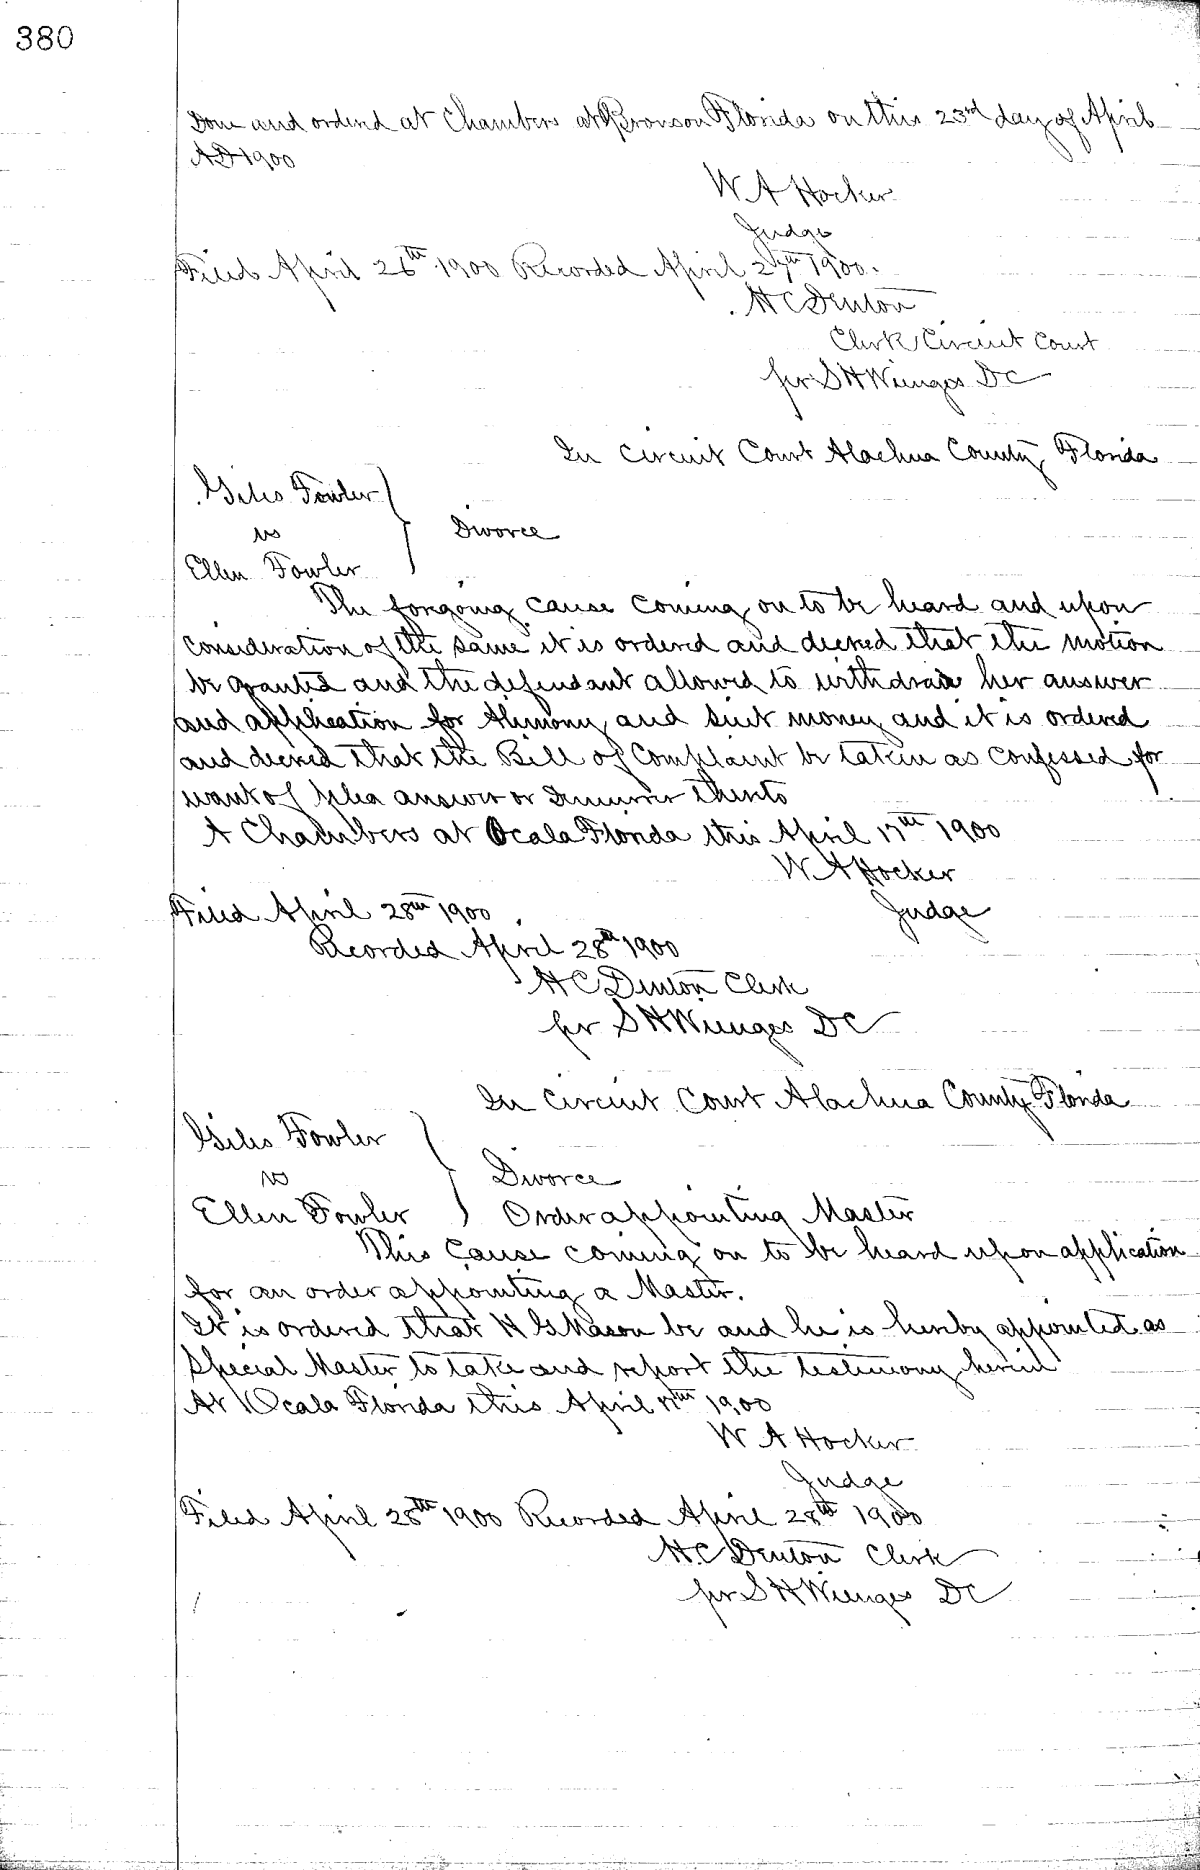 380
Done and ordered at Chambers at Bronson Florida on this 23rd day of April
AD 1900
W A Hocker
Judge
Filed April 26th 1900 Recorded April 27th 1900.
H C Denton
Clerk Circuit Court
per S H Wienges DC
In Circuit Court Alachua County Florida
Giles Fowler
vs
Divorce
Ellen Fowler
The forgoing cause coming on to be heard and upon
consideration of the same it is ordered and decreed that the motion
be granted and the defendant allowed to withdraw her answer
and application for Alimony and suit money and it is ordered
and decreed that the Bill of Complaint be taken as confessed for
want of plea answer or Demurrer thereto
At Chambers at Ocala Florida this April 17th 1900
W A Hocker
Judge
Filed April 28th 1900
Recorded April 28th 1900
H C Denton Clerk
per S H Wienges DC
In Circuit Court Alachua County Florida
Giles Fowler
vs
Divorce
Ellen Fowler Order appointing Master
This Cause coming on to be heard upon application
for an order appointing a Master.
It is ordered that H G Mason be and he is hereby appointed as
Special Master to take and report the testimony herein
At Ocala Florida this April 17th 1900
W A Hocker
Judge
Filed April 28th 1900 Recorded April 28th 1900
H C Denton Clerk
per S H Wienges DC